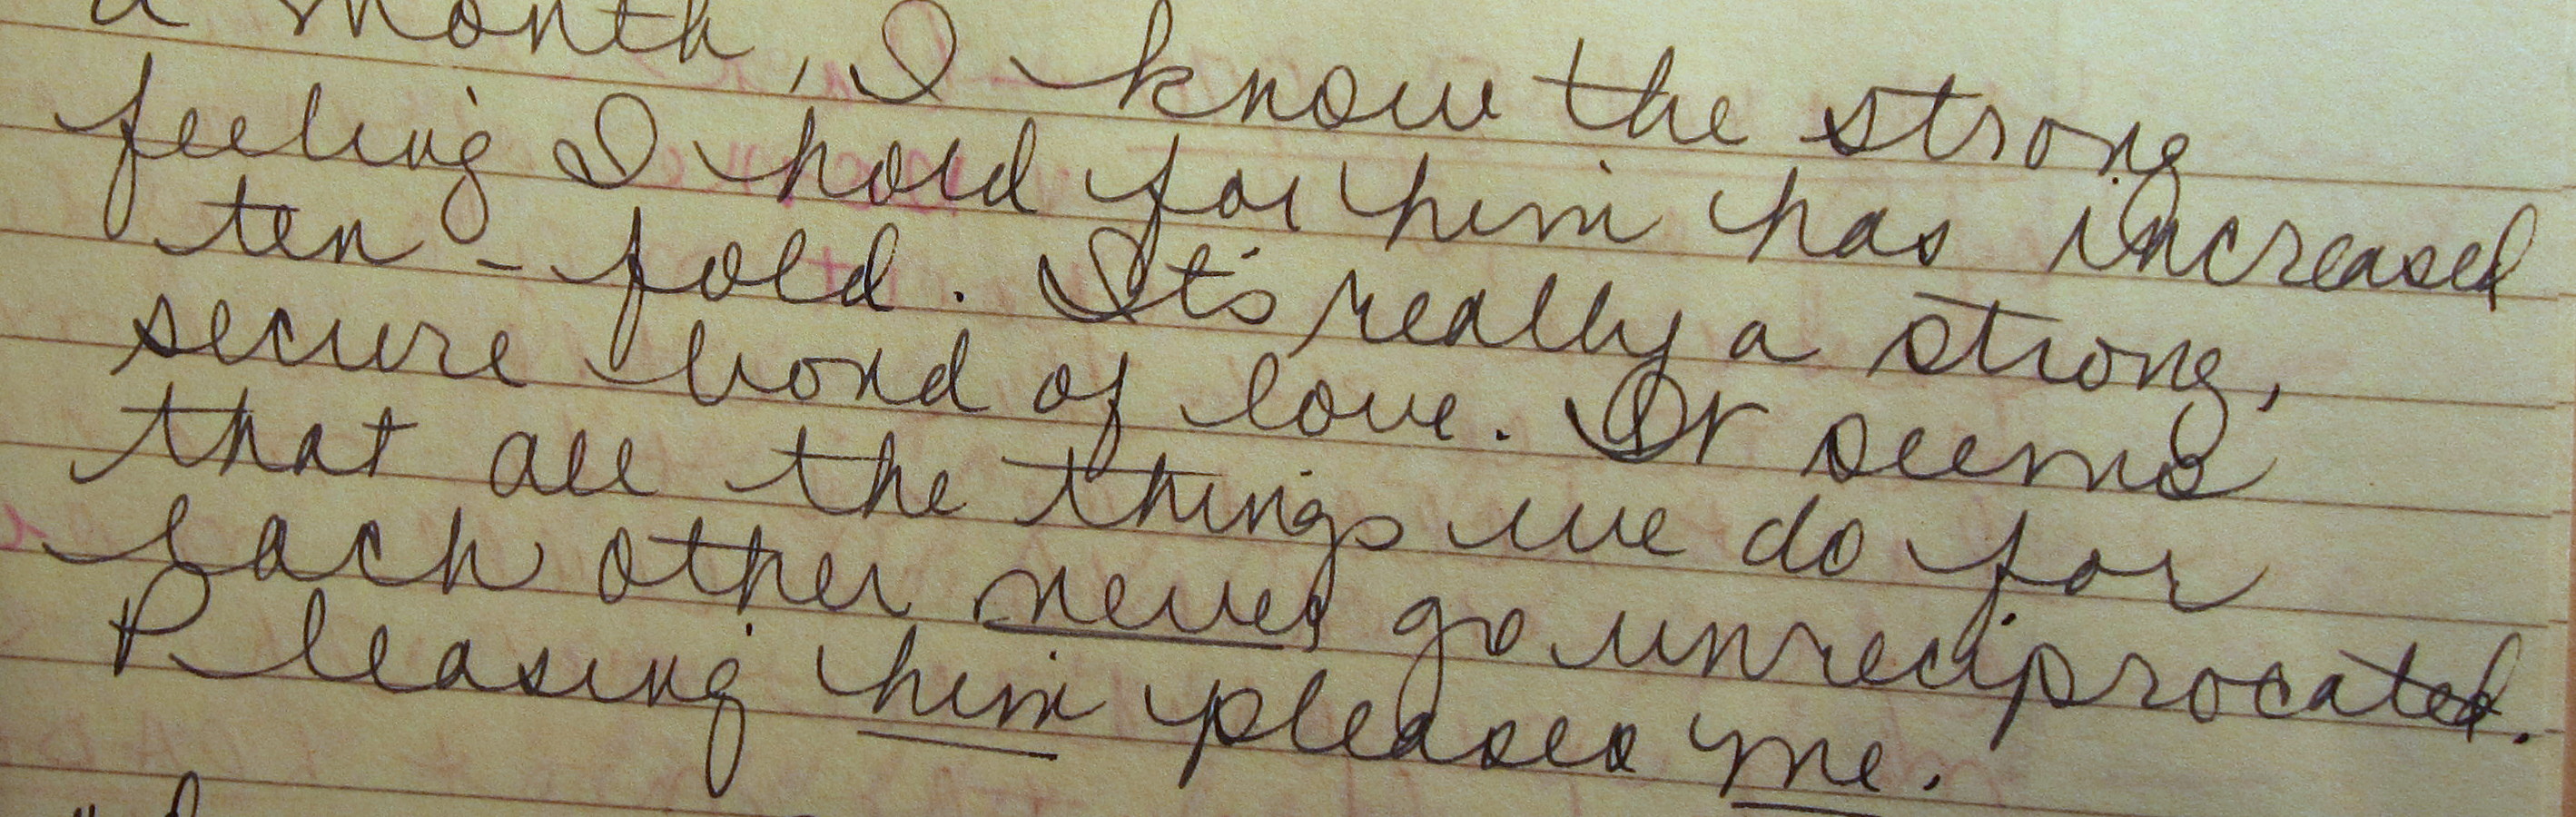 a month, I know the strong
feeling I hold for him has increased
ten-fold. It's really a strong,
secure bond of love. It seems
that all the things we do for
each other never go unreciprocated.
Pleasing him pleases me.